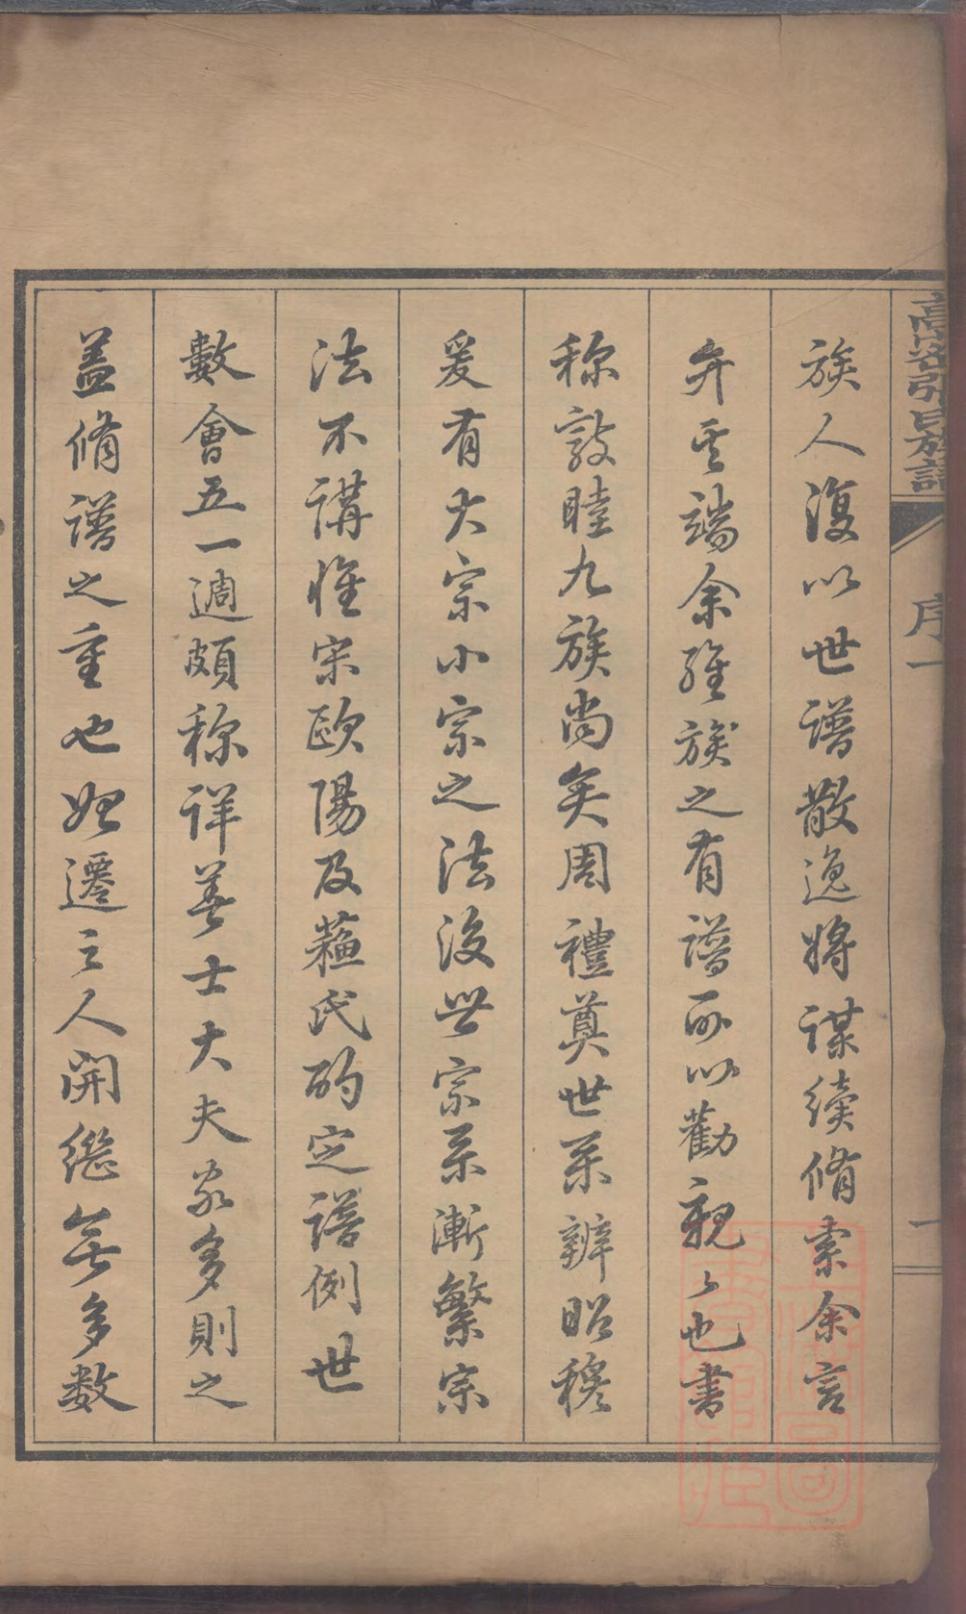 族人復以世譜散逸將謀續脩索余言
弁其端余維族之有譜所以勸親〻也書
称敦睦九族尚矣周禮奠世系辨昭穆
爰有大宗小宗之法後世宗系漸繁宗
法不講惟宋歐陽及蘓氏酌定譜例世
數會五一週頗称詳善士大夫家多則之
盖脩譜之重也如此遷之人開継無多数
張氏族譜
序一
一